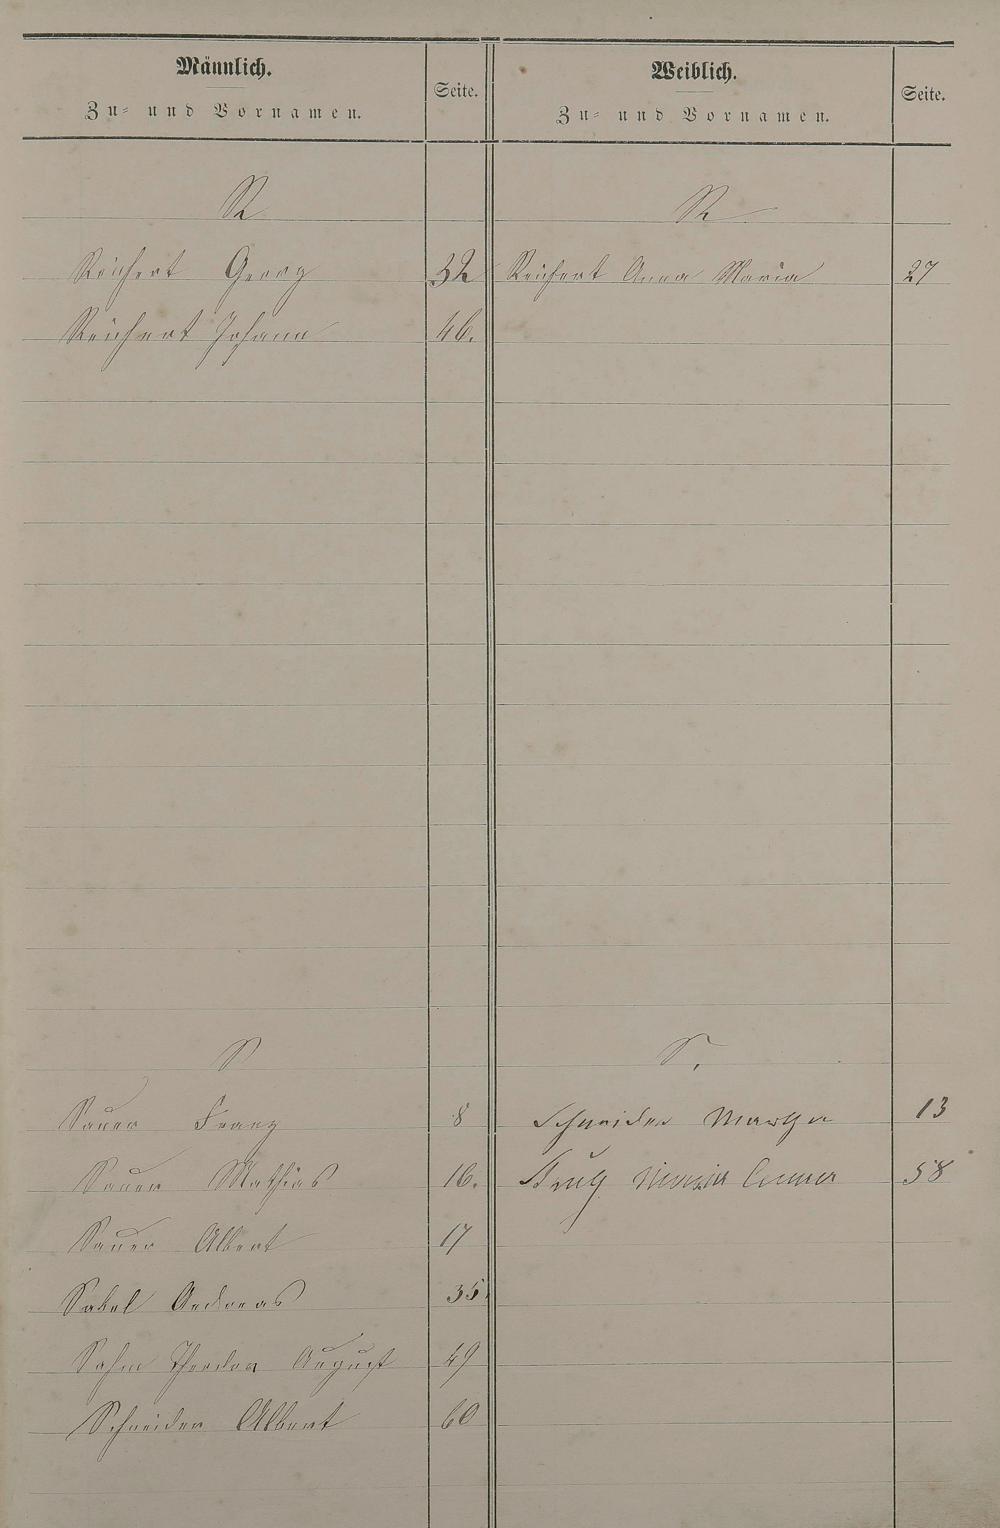 Männlich.
Zu- und Vornamen.
Seite.
Weiblich.
Zu- und Vornamen.
Seite.
R
R
Reichert Georg 32 Reichert Anna Maria 27
Reichert Johann 46.
S
S.
Sauer Franz 8 Schneider Martha 13
Sauer Mathias 16. Maria Anna 58
Sauer Albert 17
Sabel Andreas 35
Sahm Theodor August 49
Schneider Albert 60